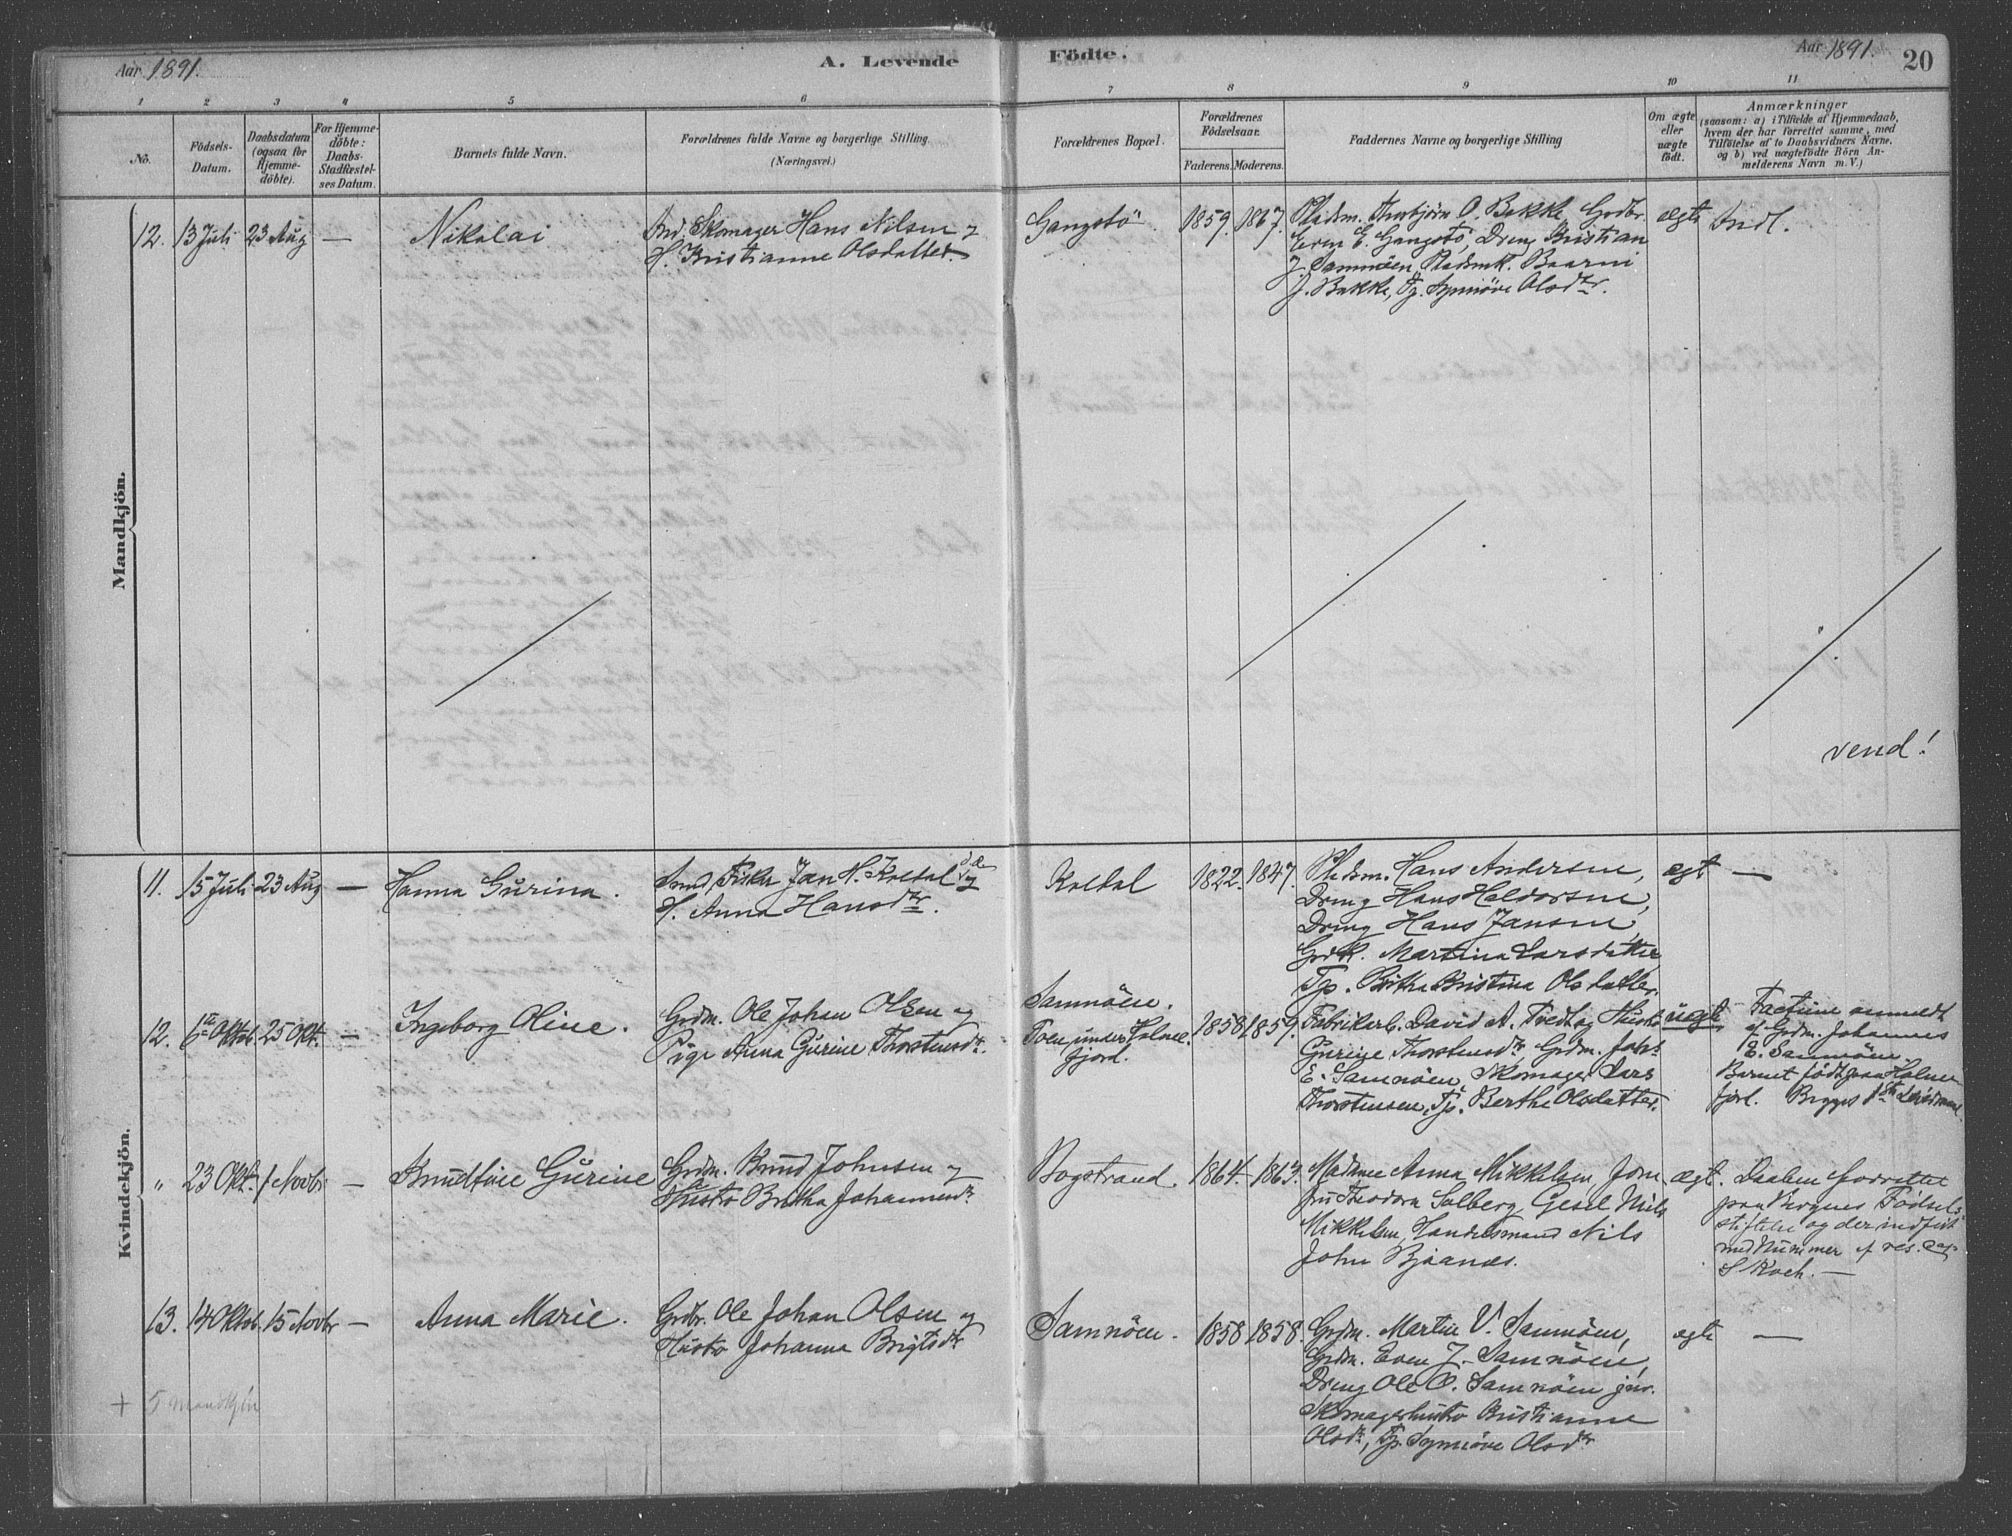 Aar 1891.
A. Levende
Födte.
Aar 1891.
20
1
2
3
4
5
6
7
8
9
10
11
No.
Födsels-
Datum.
Daabsdatum
(ogsaa for
Hjemme-
döbte).
For Hjemme-
döbte:
Daabs-
Stadfæstel-
ses Datum.
Barnets fulde Navn.
Forældrenes fulde Navne og borgerlige Stilling
(Næringsvei.)
Forældrenes Bopæl.
Forældrenes
Födselsaar.
Faderens.
Moderens.
Faddernes Navne og borgerlige Stilling
Om ægte
eller
uægte
födt.
Anmærkninger
(saasom: a) i Tilfælde af Hjemmedaab,
hvem der har forrettet samme, med
Tilföielse af to Daabsvidners Navne,
og b) ved uægtefödte Börn An-
melderens Navn m. V.)
Mandkjön.
12. 13 Juli 23 Aug —
Nikolai
Ind. Skomager Hans Nilsen og
H. Kristianne Olsdatter.
Gangstö
1859. 1867.
Pladsm. Thorbjörn O. Bakke, Grdbr.
Even E. Gangstö, Dreng Kristian
J. Samnöen, Pladsmk. Baarni
J. Bakke, Tp. Synnöve Olsdtr.
ægte
Indl.
vend!
Kvindekjön.
11. 15 Juli 23 Aug —
Hanna Gurina.
Fisker Jan H. Koldal og
H. Anna Hansdtr.
Koldal
1822. 1847.
Pladsm. Hans Andersen,
Dreng Hans Haldorsen,
Dreng Hans Jansen,
Grdk. Martina Larsdatter
Tp. Britha Kristina Olsdatter.
ægt —
12. 6te Oktob. 25 Okt. —
Ingeborg Oline.
Grdm. Ole Johan Olsen og
Pige Anna Gurine Thorstensdtr.
Samnöen.
Toen under Holme-
fjord.
1858. 1859.
Fabrikarb. David A. Tvedt og Hustro
Gurine Thorstensdtr, Grdm. Johs
E. Samnöen, Skomager Lars
Thorstensen, Tp. Berthe Olsdatter.
uægte
Factum anmeldt
af Grdm. Johannes
E. Samnöen.
Barnet födt paa Holme-
fjord. Begges 1ste Leiermaal
" 23 Okt. 1 Novbr —
Knudtine Gurine
Grdm. Knud Johnsen og
Hustro Britha Johannesdtr.
Vogstrand.
1864. 1863.
Madame Anna Mikkelsen, Jom
fru Theodora Solberg, Gesel Nils
Mikkelsen, Handelsmand Nils
John Bjaanæs.
ægt.
Daaben forrettet
paa Bergens Födsels-
stiftelse og der indfört
med Nummer af res. Cap.
S Koch. —
13. 14 Oktob. 15 Novbr —
Anna Marie.
Grdbr. Ole Johan Olsen og
Hustro Johanna Brigtsdtr
Samnöen.
1858 1858.
Grdm. Martin V. Samnöen,
Grdm. Even J. Samnöen,
Dreng Ole O. Samnöen jun.
Skomagerhustro Kristianne
Olsdtr, Tp. Synnöve Olsdtr
ægte —
+ 5 mandkjön